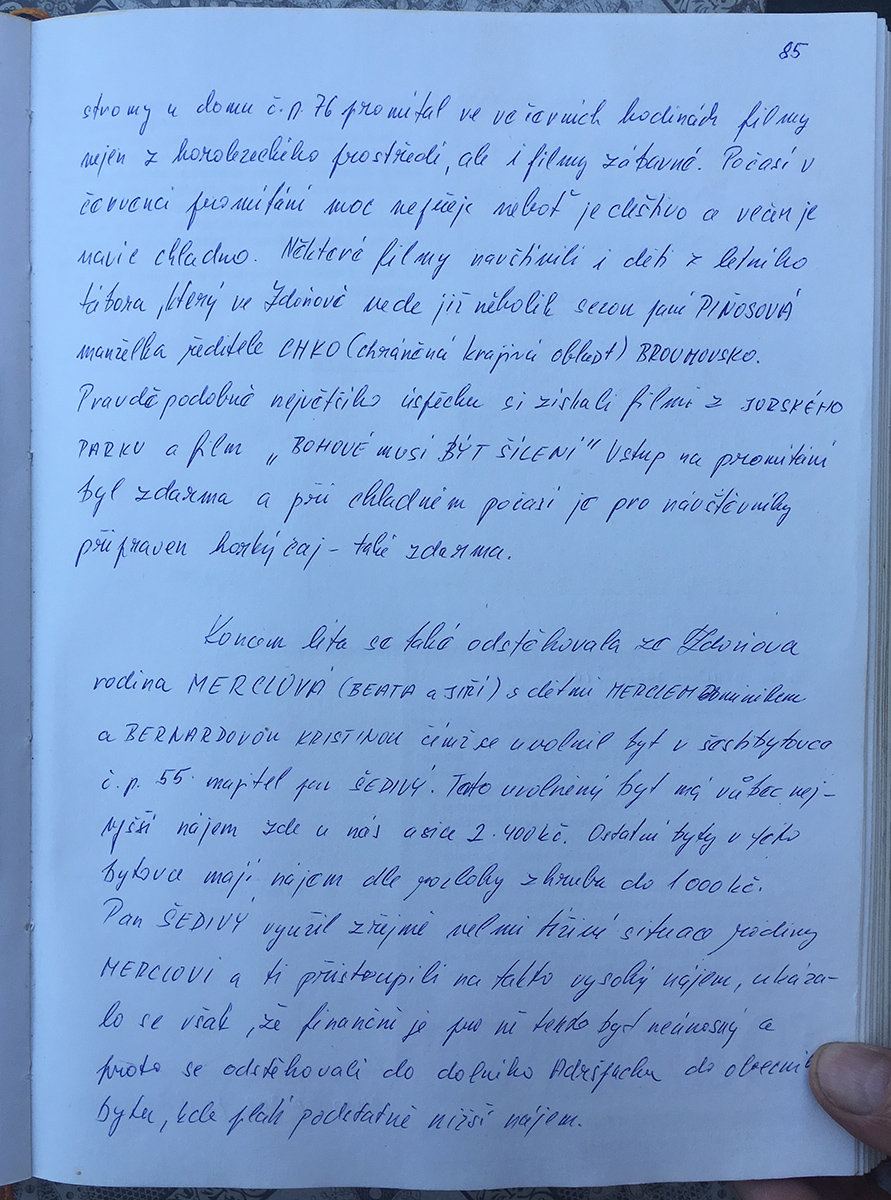 85
stromy u domu č.p. 76 promítal ve večerních hodinách filmy
nejen z horolezeckého prostředí, ale i filmy zábavné. Počasí v
červenci promítání moc nepřeje neboť je deštivo a večer je
navíc chladno. Některé filmy navštívili i děti z letního
tábora, který ve Zdoňově vede již několik sezon paní PIŇOSOVÁ
manželka ředitele CHKO (chráněná krajiná oblast) BROUMOVSKO.
Pravděpodobně největšího úspěchu si získali filmi z JURSKÉHO
PARKU a film „BOHOVÉ MUSÍ BÝT ŠÍLENÍ" Vstup na promítání
byl zdarma a při chladném počasí je pro návštěvníky
připraven horký čaj - také zdarma.
Koncem léta se také odstěhovala ze Zdoňova
rodina MERCLOVÁ (BEATA a JIŘÍ) s dětmi MERCLEM Dominikem
a BERNARDOVOU KRISTINOU čímž se uvolnil byt v šestibytovce
č.p. 55 majitel pan ŠEDIVÝ. Tento uvolněný byt má vůbec nej-
vyšší nájem zde u nás a sice 2.400 kč. Ostatní byty v této
bytovce mají nájem dle podlahy zhruba do 1000 kč.
Pan ŠEDIVÝ využil zřejmě velmi tíživé situace rodiny
MERCLOVI a ti přistoupili na takto vysoký nájem, ukáza-
lo se však, že finančně je pro ně tento byt neúnosný a
proto se odstěhovali do dolního Adršpachu do obecní
bytu, kde platí podstatně nižší nájem.